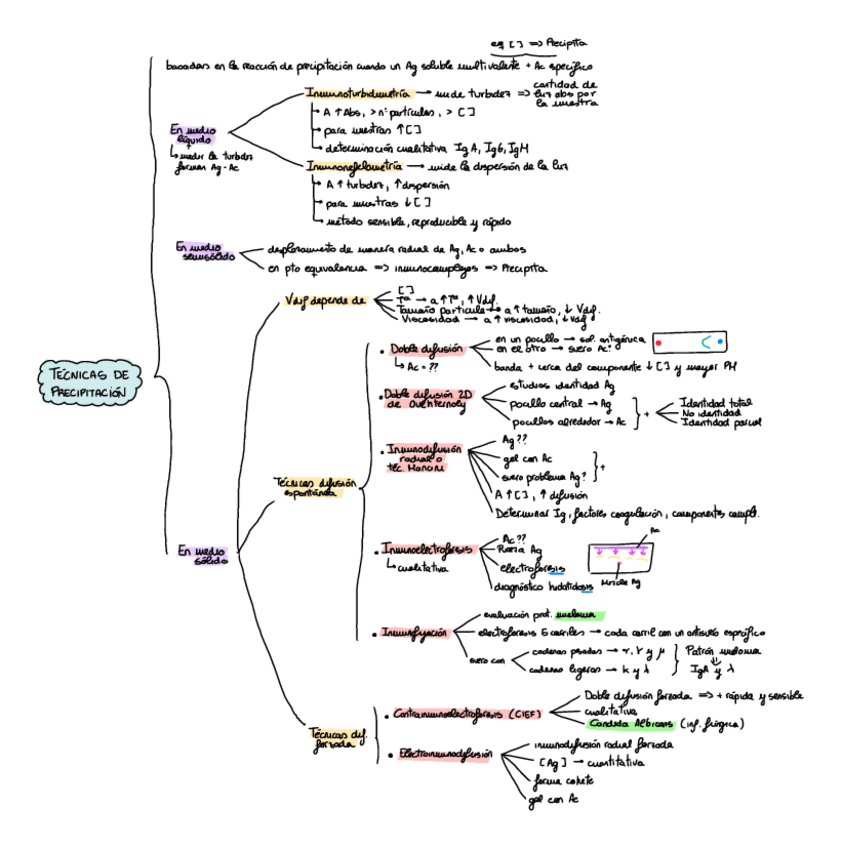 eq [ ] => Precipita
basadas en la reacción de precipitación cuando un Ag soluble multivalente + Ac específico
TÉCNICAS DE
PRECIPITACIÓN
En medio
líquido
↳ medir la turbidez
forman Ag - Ac
Inmunoturbidimetría → mide turbidez => cantidad de
luz abs por
la muestra
A ↑ Abs, > nº partículas, > [ ]
para muestras ↑ [ ]
determinación cualitativa IgA, IgG, IgM
Inmunonefelometría → mide la dispersión de la luz
A ↑ turbidez, ↑ dispersión
para muestras ↓ [ ]
método sensible, reproducible y rápido
En medio
semisólido
desplazamiento de manera radial de Ag, Ac o ambos
en pto equivalencia => inmunocomplejos => Precipita
En medio
sólido
Vdif depende de
[ ]
Tª → a ↑ Tª, ↑ Vdif.
Tamaño partícula → a ↑ tamaño, ↓ Vdif.
Viscosidad → a ↑ viscosidad, ↓ Vdif
Técnicas difusión
espontánea
• Doble difusión
↳ Ac = ??
en un pocillo → sol. antigénica
en el otro → suero Ac?
banda + cerca del componente ↓ [ ] y mayor PM
• Doble difusión 2D
de Ouchternoly
estudios identidad Ag
pocillo central → Ag
pocillos alrededor → Ac
+
Identidad total
No identidad
Identidad parcial
• Inmunodifusión
radial o
téc. Mancini
Ag ??
gel con Ac
suero problema Ag?
+
A ↑ [ ], ↑ difusión
Determinar Ig, factores coagulación, componentes compl.
• Inmunoelectroforesis
↳ cualitativa
Ac ??
Mezcla Ag
electroforesis
diagnóstico hidatidosis
Ac
Mezcla Ag
• Inmunofijación
evaluación prot. mieloma
electroforesis 6 carriles → cada carril con un antisuero específico
suero con
cadenas pesadas → α, γ y μ
cadenas ligeras → k y λ
Patrón mieloma
⇓
IgA y λ
Técnicas dif.
forzada
• Contrainmunoelectroforesis (CIEF)
Doble difusión forzada => + rápida y sensible
cualitativa
Candida Albicans (inf. fúngica)
• Electroinmunodifusión
inmunodifusión radial forzada
[Ag] → cuantitativa
forma cohete
gel con Ac